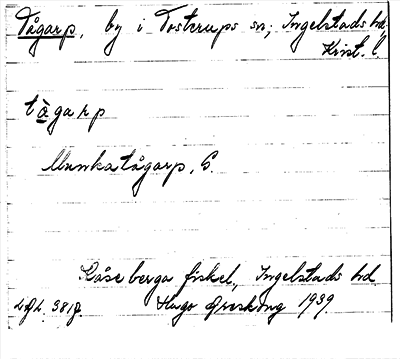 Tågarp, by i Tosterups sn; Ingelstads hd,
Krist. l.
tågarp
Munkatågarp, S.
Kåseberga fiskel., Ingelstads hd.
Hugo Areskoug 1939.